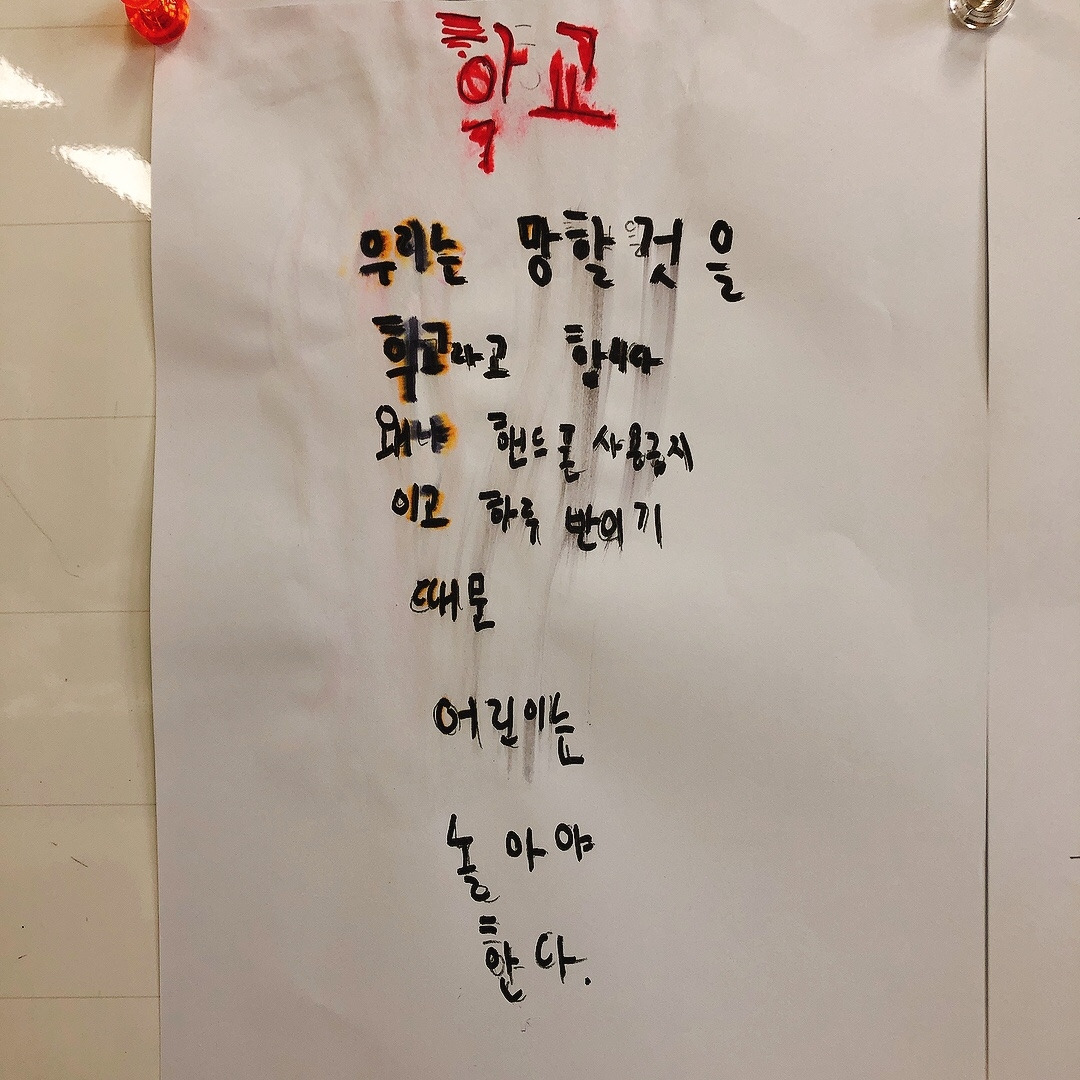 학교
우리는 망할것을
학교라고 합니다
왜냐 핸드폰사용금지
이고 하루 반이기
때문
어린이는
놀아야
한다.